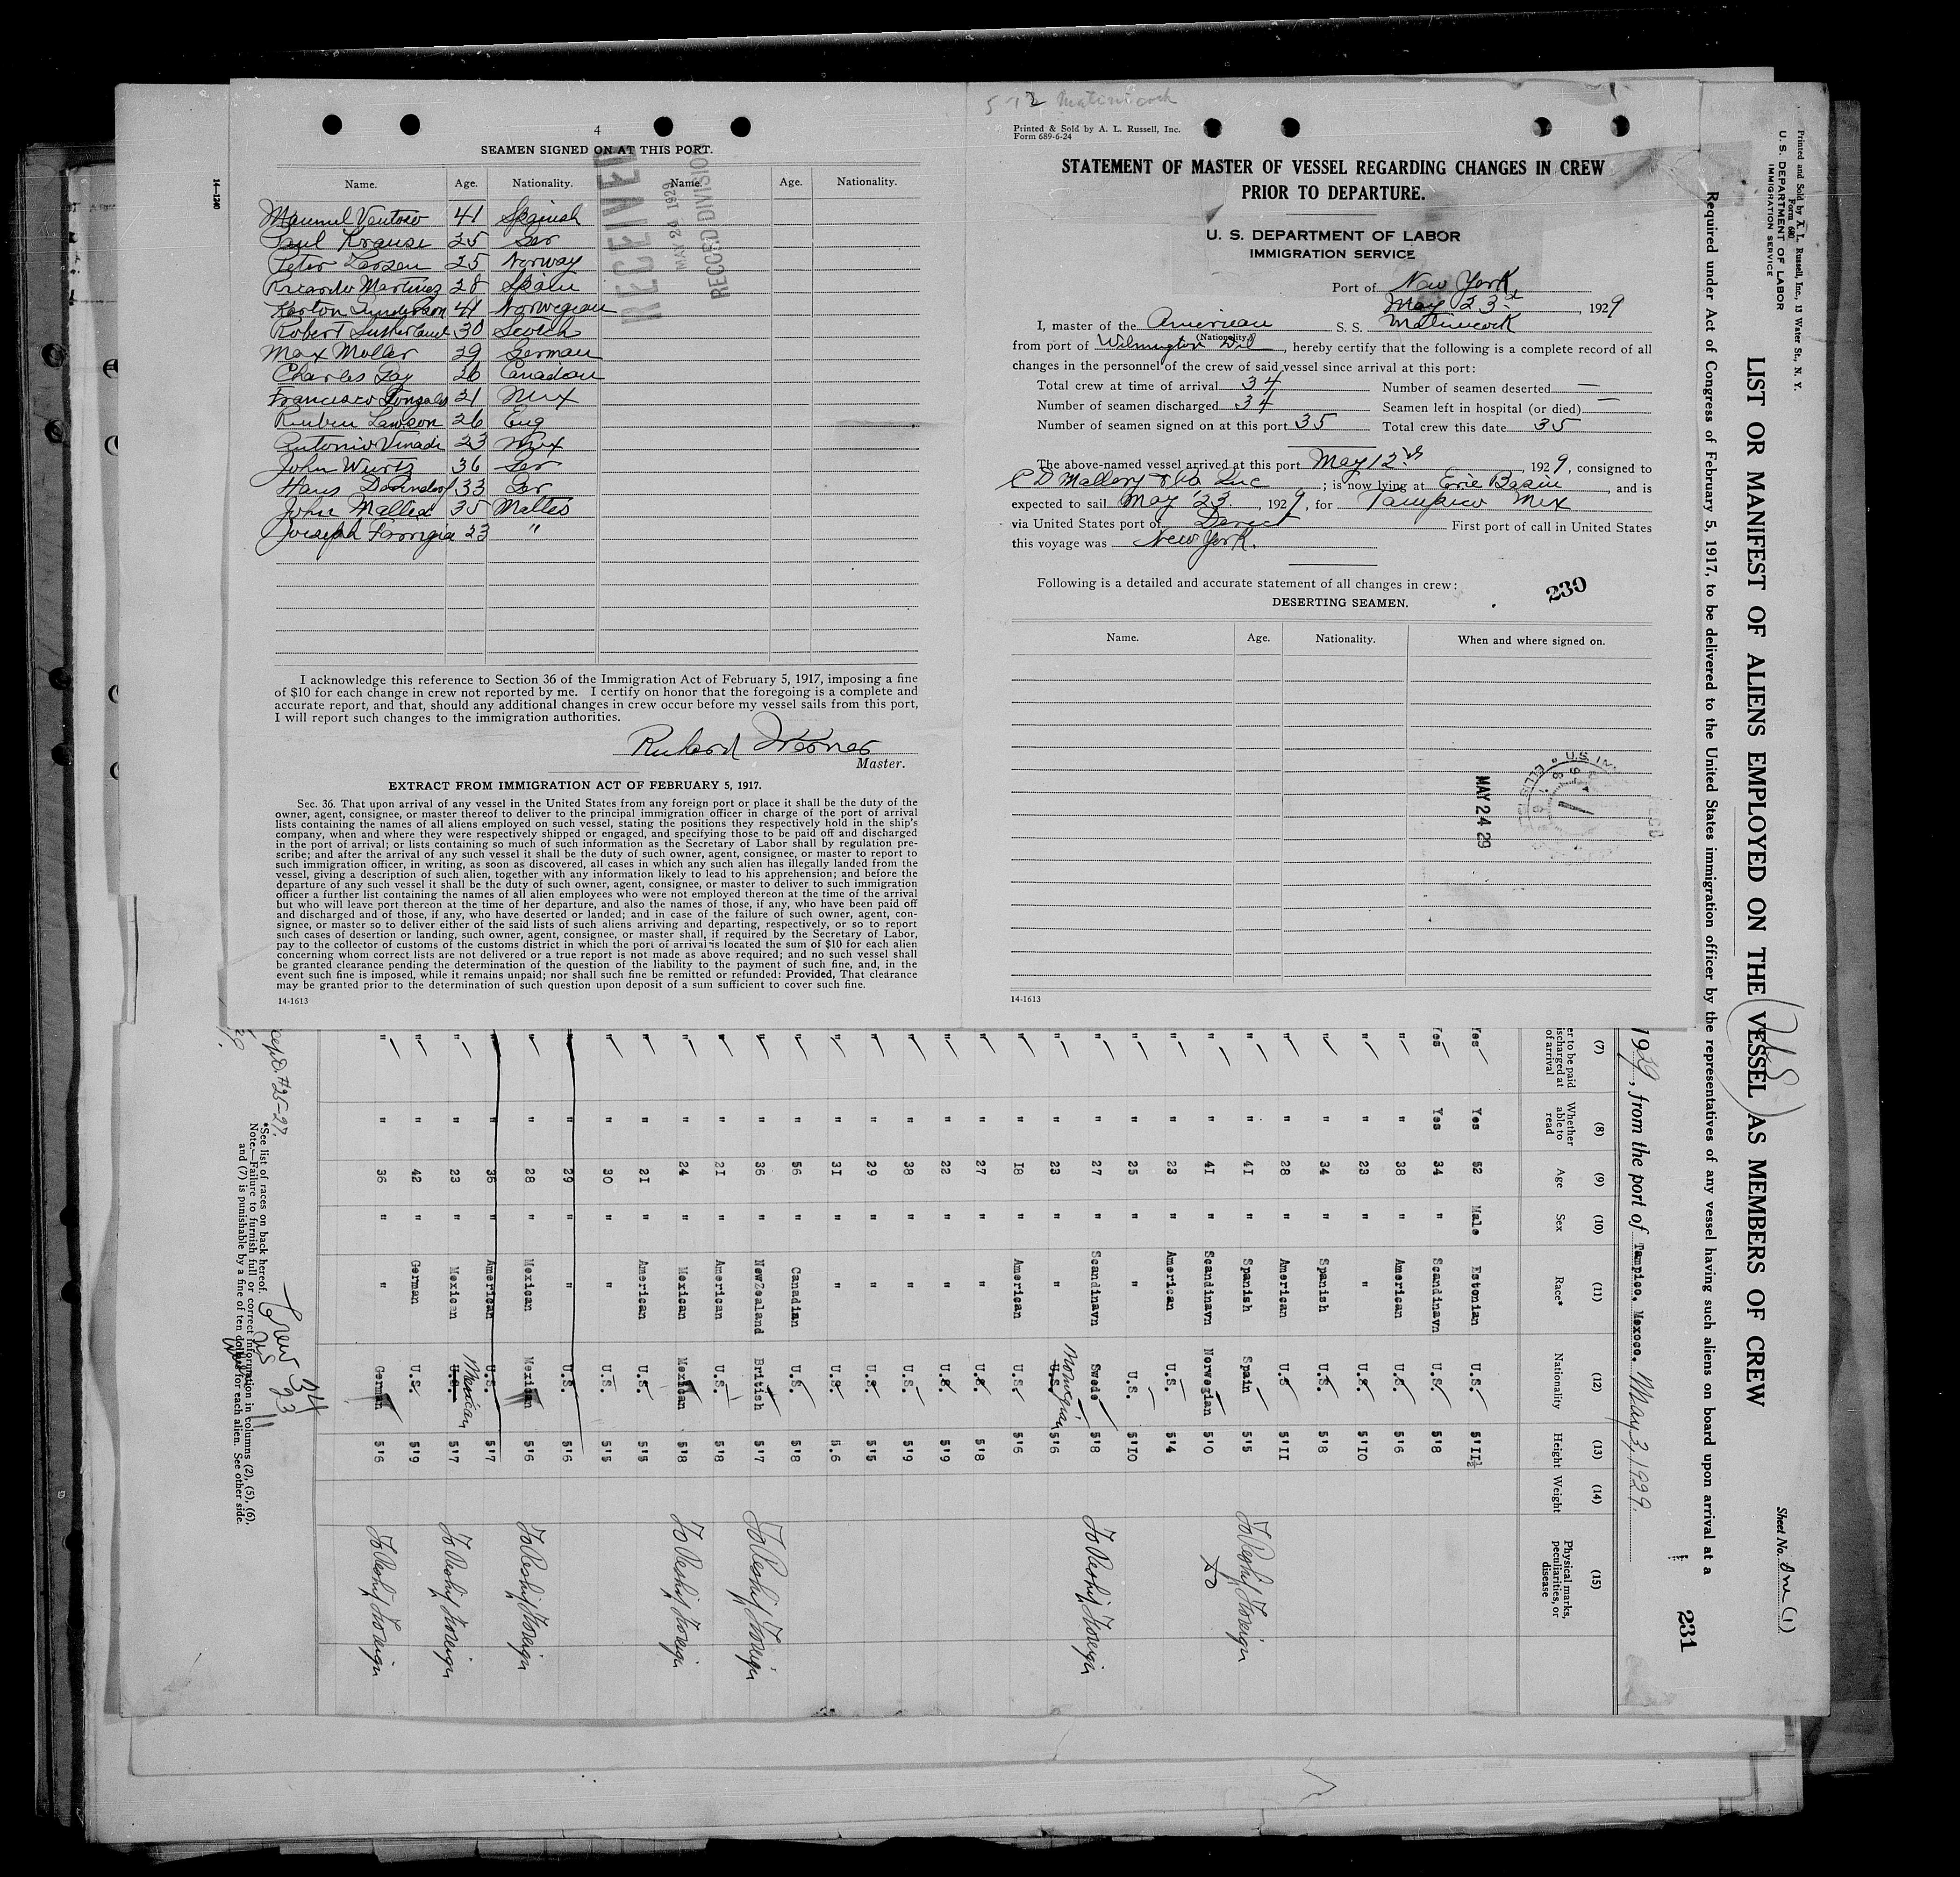 4
SEAMEN SIGNED ON AT THIS PORT.
Name. Age. Nationality. Name. Age. Nationality.
14-1240
RECEIVED
MAY 24 1929
RECORD DIVISION
41 Spanish
Paul Krause 25 Ger
Peter Larsen 25 Norway
Ricardo Martinez 28 Spain
41 Norwegian
Robert Sutherland 30 Scotch
Max Moller 29 German
Charles Gay 26 Canadian
Francisco Gonzales 21 Mex
Ruben Lawson 26 Eng
Antonio 23 Mex
John Wurtz 36 Ger
Hans 33 Ger
John Mallia 35
Joseph 23 "
I acknowledge this reference to Section 36 of the Immigration Act of February 5, 1917, imposing a fine
of $10 for each change in crew not reported by me. I certify on honor that the foregoing is a complete and
accurate report, and that, should any additional changes in crew occur before my vessel sails from this port,
I will report such changes to the immigration authorities.
Richard
Master.
EXTRACT FROM IMMIGRATION ACT OF FEBRUARY 5, 1917.
Sec. 36. That upon arrival of any vessel in the United States from any foreign port or place it shall be the duty of the
owner, agent, consignee, or master thereof to deliver to the principal immigration officer in charge of the port of arrival
lists containing the names of all aliens employed on such vessel, stating the positions they respectively hold in the ship's
company, when and where they were respectively shipped or engaged, and specifying those to be paid off and discharged
in the port of arrival; or lists containing so much of such information as the Secretary of Labor shall by regulation pre-
scribe; and after the arrival of any such vessel it shall be the duty of such owner, agent, consignee, or master to report to
such immigration officer, in writing, as soon as discovered, all cases in which any such alien has illegally landed from the
vessel, giving a description of such alien, together with any information likely to lead to his apprehension; and before the
departure of any such vessel it shall be the duty of such owner, agent, consignee, or master to deliver to such immigration
officer a further list containing the names of all alien employees who were not employed thereon at the time of the arrival
but who will leave port thereon at the time of her departure, and also the names of those, if any, who have been paid off
and discharged and of those, if any, who have deserted or landed; and in case of the failure of such owner, agent, con-
signee, or master so to deliver either of the said lists of such aliens arriving and departing, respectively, or so to report
such cases of desertion or landing, such owner, agent, consignee, or master shall, if required by the Secretary of Labor,
pay to the collector of customs of the customs district in which the port of arrival is located the sum of $10 for each alien
concerning whom correct lists are not delivered or a true report is not made as above required; and no such vessel shall
be granted clearance pending the determination of the question of the liability to the payment of such fine, and, in the
event such fine is imposed, while it remains unpaid; nor shall such fine be remitted or refunded: Provided, That clearance
may be granted prior to the determination of such question upon deposit of a sum sufficient to cover such fine.
14-1613
5-12 Matinicock
Printed & Sold by A. L. Russell, Inc.
Form 689-6-24
STATEMENT OF MASTER OF VESSEL REGARDING CHANGES IN CREW
PRIOR TO DEPARTURE.
U. S. DEPARTMENT OF LABOR
IMMIGRATION SERVICE
Port of New York
May 23rd, 1929
I, master of the American S. S. Matinicock
(Nationality)
from port of Wilmington Del, hereby certify that the following is a complete record of all
changes in the personnel of the crew of said vessel since arrival at this port:
Total crew at time of arrival 34 Number of seamen deserted —
Number of seamen discharged 34 Seamen left in hospital (or died) —
Number of seamen signed on at this port 35 Total crew this date 35
The above-named vessel arrived at this port May 12th, 1929, consigned to
C D Mallory & Co Inc; is now lying at Erie Basin, and is
expected to sail May 23, 1929, for Tampico Mex
via United States port of Direct First port of call in United States
this voyage was New York.
Following is a detailed and accurate statement of all changes in crew:
230
DESERTING SEAMEN.
Name. Age. Nationality. When and where signed on.
MAY 24 29
14-1613
Printed and Sold by A. L. Russell, Inc., 13 Water St., N. Y.
Form 680
U. S. DEPARTMENT OF LABOR
IMMIGRATION SERVICE
Sheet No. One (1)
LIST OR MANIFEST OF ALIENS EMPLOYED ON THE VESSEL AS MEMBERS OF CREW
Required under Act of Congress of February 5, 1917, to be delivered to the United States immigration officer by the representatives of any vessel having such aliens on board upon arrival at a
231
1929, from the port of Tampico, Mexoco. May 3, 1929.
(7) (8) (9) (10) (11) (12) (13) (14) (15)
er to be paid ischarged at of arrival Whether able to read Age Sex Race* Nationality Height Weight Physical marks, peculiarities, or disease
Yes Yes 52 Male Estonian U.S. 5'11½
Yes Yes 34 " Scandinavn U.S. 5'8
" " 38 " American U.S. 5'6
" " 23 " " U.S. 5'10
" " 34 " Spanish U.S. 5'8
" " 28 " American U.S 5'11
" " 41 " Spanish Spain 5'5 To Reship Foreign
" " 41 " Scandinavn Norwegian 5'0 do
" " 23 " American U.S. 5'4
" " 25 " " U.S. 5'10
" " 27 " Scandinavn Swede 5'8 To Reship Foreign
" " 23 " " U.S. Norwegian 5'6
" " 18 " American U.S. 5'6
" " 27 " " U.S. 5'8
" " 22 " " U.S. 5'9
" " 38 " " U.S. 5'9
" " 29 " " U.S. 5'5
" " 31 " " U.S. 5.6
" " 56 " Canadian U.S. 5'8
" " 36 " NewZealand British 5'7 To Reship Foreign
" " 21 " American U.S. 5'8
" " 24 " Mexican Mexican 5'8 To Reship Foreign
" " 21 " American U.S. 5'5
" " 30 " " U.S. 5'5
" " 29 " " U.S. 5'6
" " 28 " Mexican Mexican 5'6 To Reship Foreign
" " 36 " American U.S. 5'7
" " 23 " Mexican U.S. Mexican 5'7 To Reship Foreign
" " 42 " German U.S. 5'9
" " 36 " " German 5'6 To Reship Foreign
#25-27.
Crew 34
US 23
11
*See list of races on back hereof.
Note.—Failure to furnish full or correct information in columns (2), (5), (6),
and (7) is punishable by a fine of ten dollars for each alien. See other side.